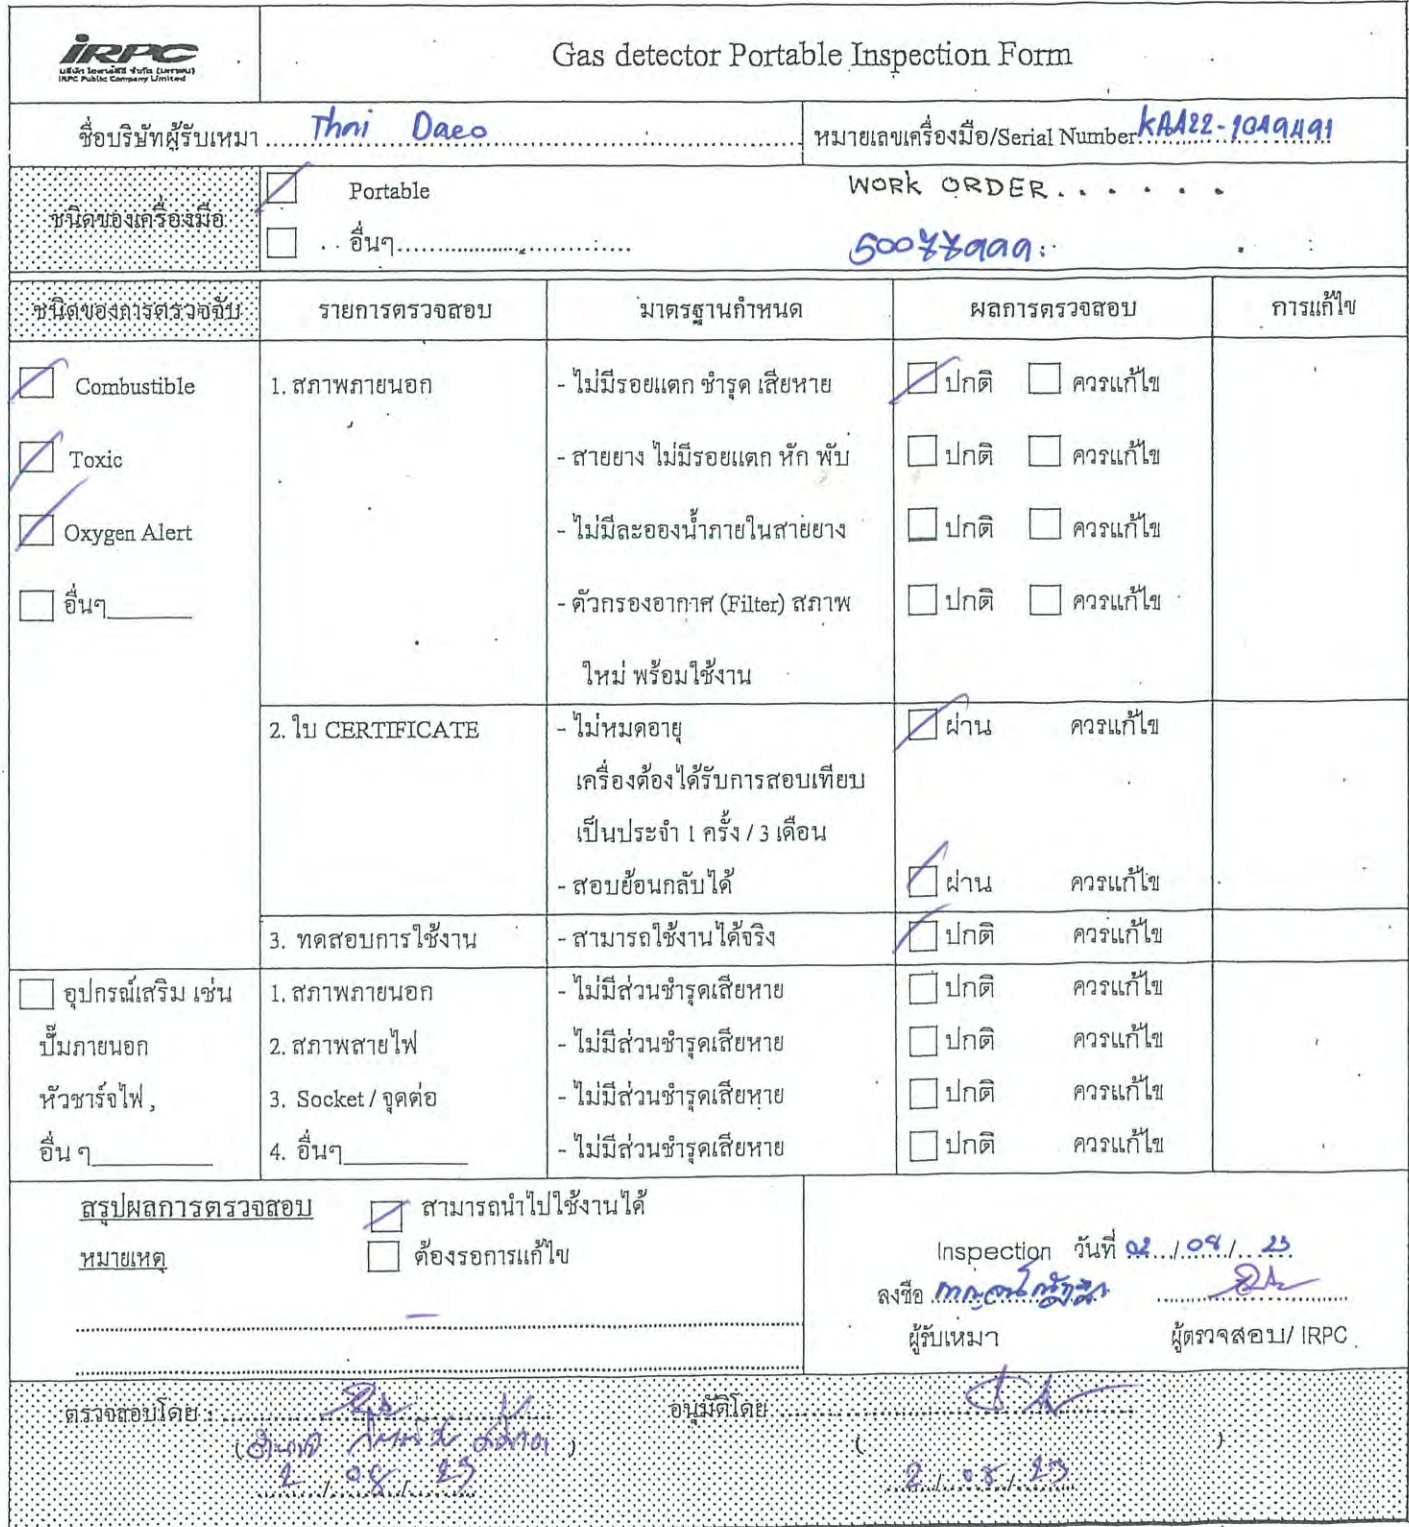 IRPC
บริษัท ไออาร์พีซี จำกัด (มหาชน)
IRPC Public Company Limited
Gas detector Portable Inspection Form
ชื่อบริษัทผู้รับเหมา Thai Daeo
หมายเลขเครื่องมือ/Serial Number KAA22-1049491
ชนิดของเครื่องมือ
Portable
WORK ORDER......
อื่นๆ
ชนิดของการตรวจจับ รายการตรวจสอบ มาตรฐานกำหนด ผลการตรวจสอบ การแก้ไข
Combustible 1. สภาพภายนอก - ไม่มีรอยแตก ชำรุด เสียหาย ปกติ ควรแก้ไข
Toxic - สายยาง ไม่มีรอยแตก หัก พับ ปกติ ควรแก้ไข
Oxygen Alert - ไม่มีละอองน้ำภายในสายยาง ปกติ ควรแก้ไข
อื่นๆ - ตัวกรองอากาศ (Filter) สภาพ ปกติ ควรแก้ไข
ใหม่ พร้อมใช้งาน
2. ใบ CERTIFICATE - ไม่หมดอายุ ผ่าน ควรแก้ไข
เครื่องต้องได้รับการสอบเทียบ
เป็นประจำ 1 ครั้ง / 3 เดือน
- สอบย้อนกลับได้ ผ่าน ควรแก้ไข
3. ทดสอบการใช้งาน - สามารถใช้งานได้จริง ปกติ ควรแก้ไข
อุปกรณ์เสริม เช่น 1. สภาพภายนอก - ไม่มีส่วนชำรุดเสียหาย ปกติ ควรแก้ไข
ปั๊มภายนอก 2. สภาพสายไฟ - ไม่มีส่วนชำรุดเสียหาย ปกติ ควรแก้ไข
หัวชาร์จไฟ , 3. Socket / จุดต่อ - ไม่มีส่วนชำรุดเสียหาย ปกติ ควรแก้ไข
อื่น ๆ 4. อื่นๆ - ไม่มีส่วนชำรุดเสียหาย ปกติ ควรแก้ไข
สรุปผลการตรวจสอบ สามารถนำไปใช้งานได้
หมายเหตุ ต้องรอการแก้ไข
Inspection วันที่ 02/08/23
ลงชื่อ
ผู้รับเหมา ผู้ตรวจสอบ/ IRPC
ตรวจสอบโดย : อนุมัติโดย
2/08/23 2/08/23